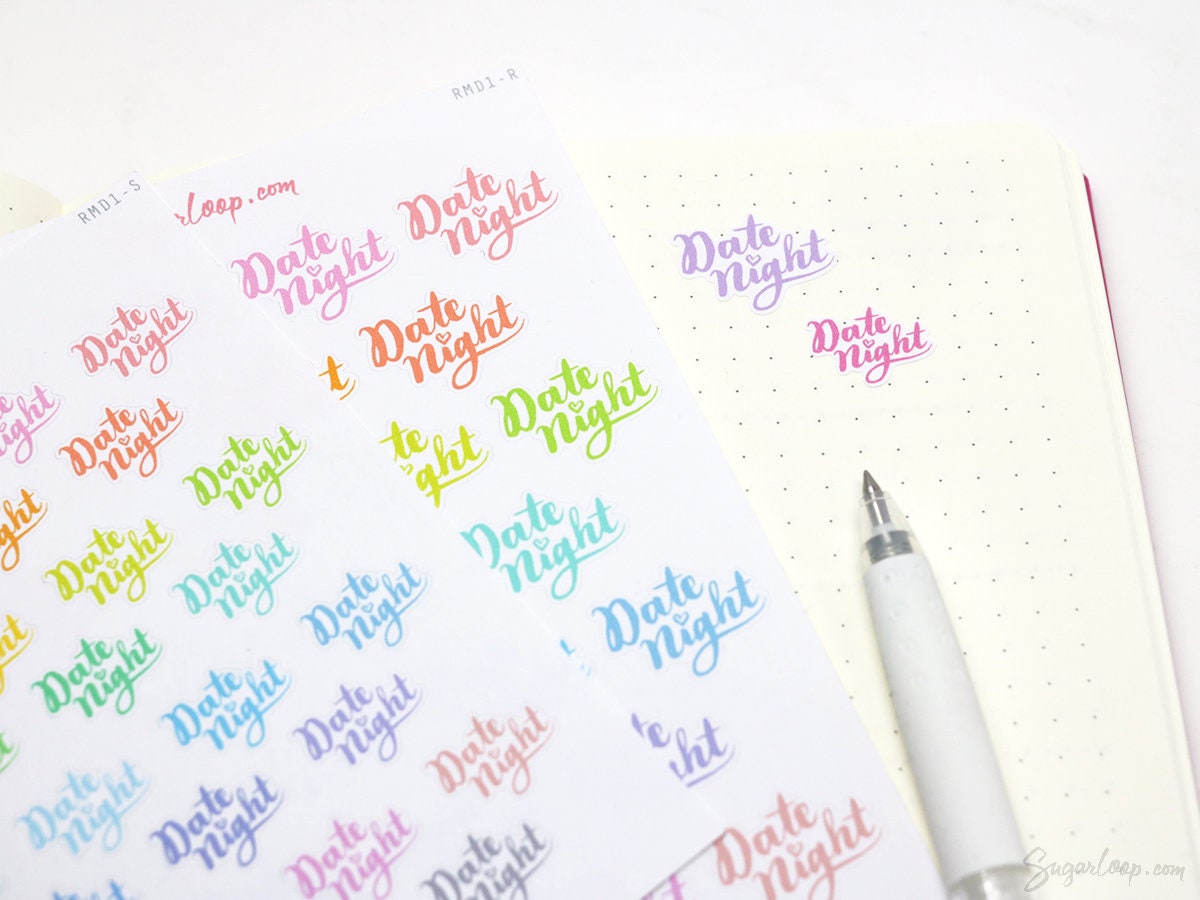 RMD1-R
rloop.com
Date
Night
Date
Night
Date
Night
t
Date
Night
te
ight
Date
Night
Date
Night
te
ht
Date
Night
RMD1-S
Date
Night
e
ight
Date
Night
Date
Night
ght
Date
Night
Date
Night
Date
Night
Date
Night
Date
Night
Date
Night
Date
Night
Date
Night
Date
Night
Date
Night
Date
Night
Date
Night
Date
Night
Sugarloop.com